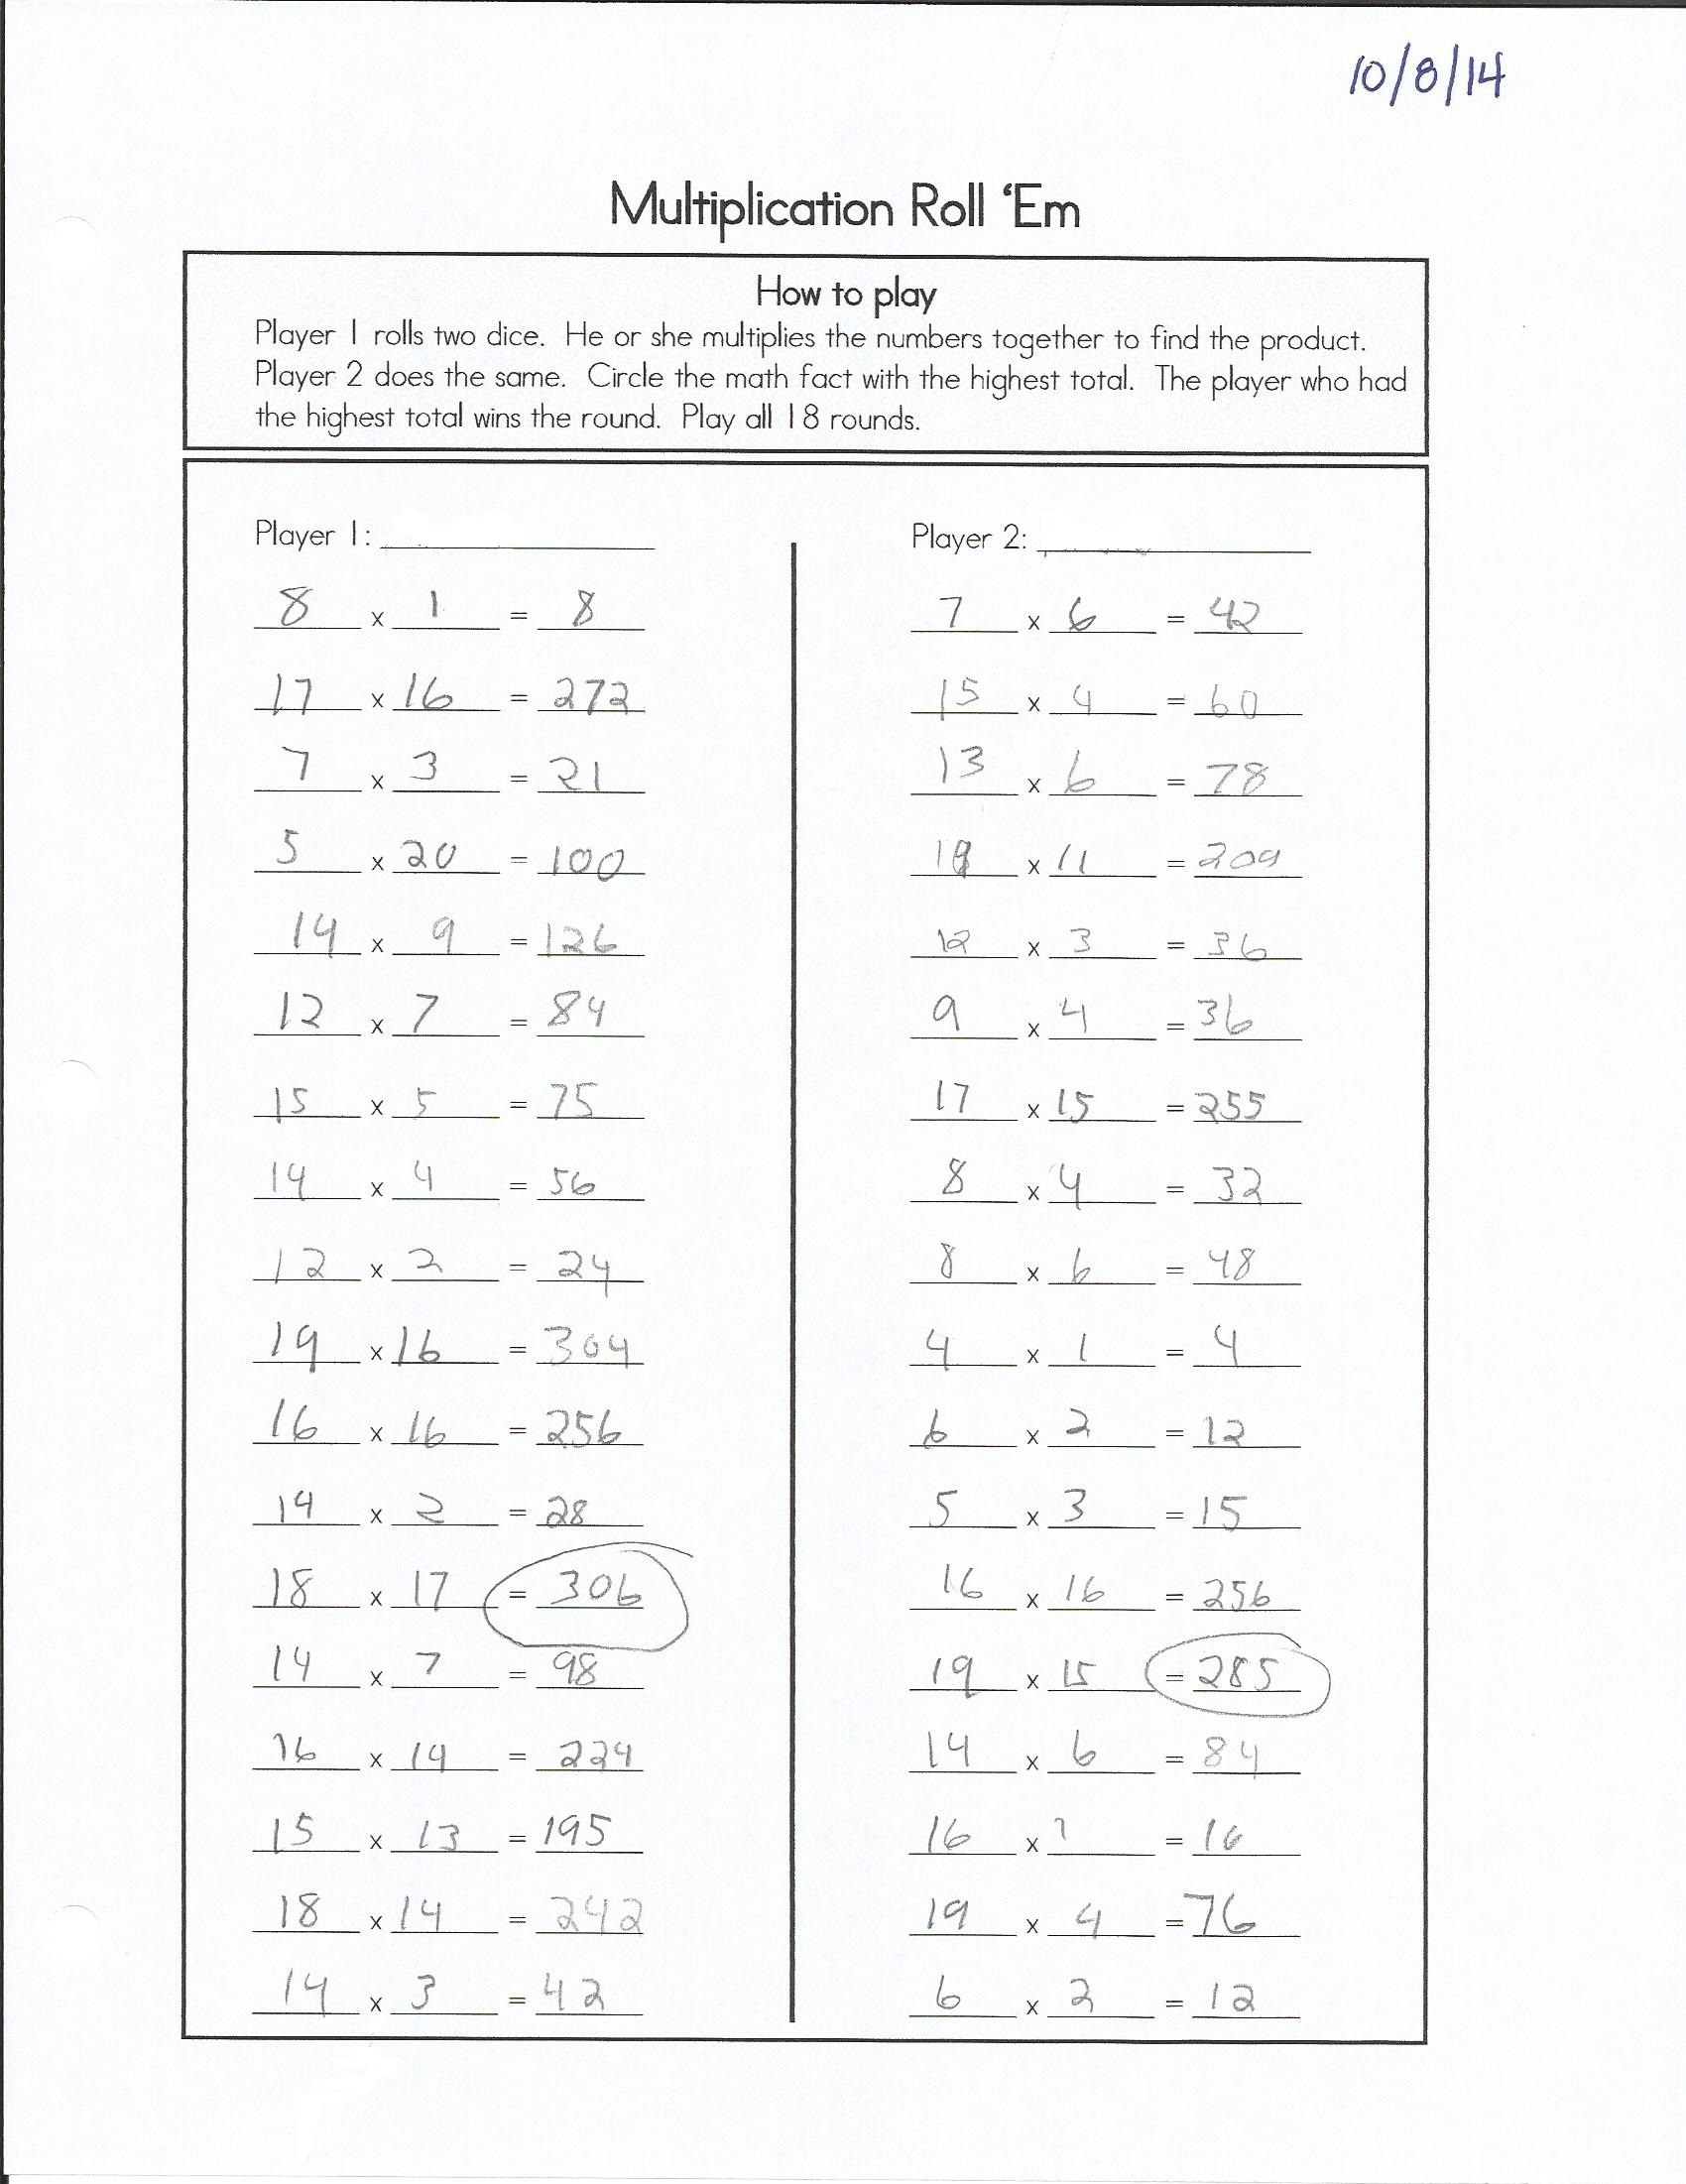 10/8/14
Multiplication Roll ‘Em
How to play
Player 1 rolls two dice. He or she multiplies the numbers together to find the product.
Player 2 does the same. Circle the math fact with the highest total. The player who had
the highest total wins the round. Play all 18 rounds.
Player 1:
8 x 1 = 8
17 x 16 = 272
7 x 3 = 21
5 x 20 = 100
14 x 9 = 126
12 x 7 = 84
15 x 5 = 75
14 x 4 = 56
12 x 2 = 24
19 x 16 = 304
16 x 16 = 256
14 x 2 = 28
18 x 17 = 306
14 x 7 = 98
16 x 14 = 224
15 x 13 = 195
18 x 14 = 242
14 x 3 = 42
Player 2:
7 x 6 = 42
15 x 4 = 60
13 x 6 = 78
19 x 11 = 209
12 x 3 = 36
9 x 4 = 36
17 x 15 = 255
8 x 4 = 32
8 x 6 = 48
4 x 1 = 4
6 x 2 = 12
5 x 3 = 15
16 x 16 = 256
19 x 15 = 285
14 x 6 = 84
16 x 1 = 16
19 x 4 = 76
6 x 2 = 12